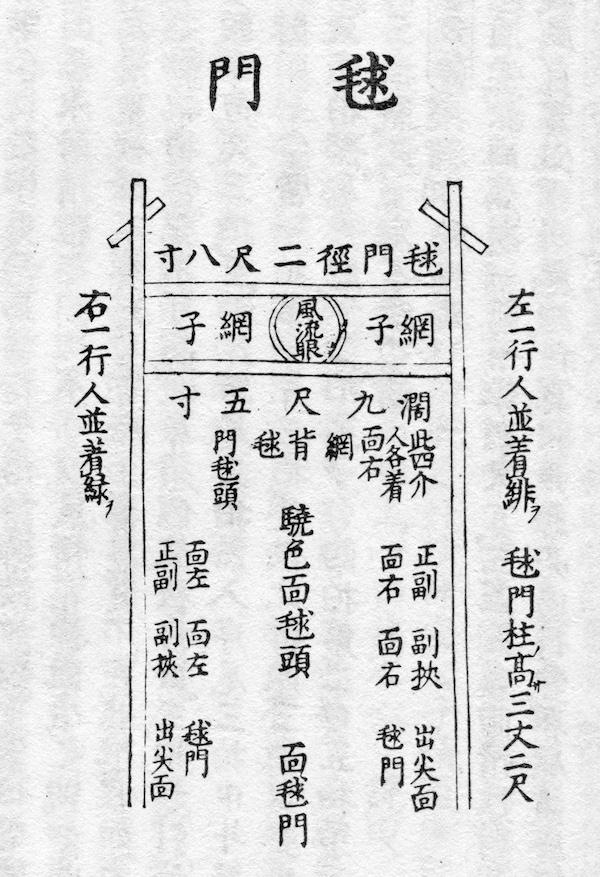 毬門
左一行人並着緋ヲ 毬門柱ノ高サ三丈二尺
毬門徑二尺八寸
網子
風流眼
網子
濶九尺五寸
此四介
人各着
面右
網
背
毬
門毬頭
正副
面右
副挾
面右
出尖面
毬門
驍色面毬頭
面毬門
面左
正副
面左
副挾
毬門
出尖面
右一行人並着緑ヲ